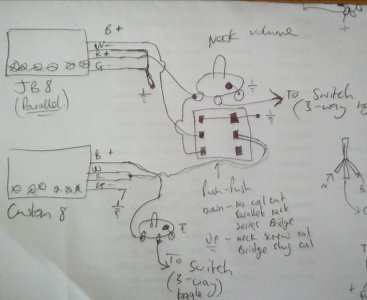 B +
W -
R +
G
JB 8
(Parallel)
Neck volume
To Switch
(3-way
B +
W
Custom 8
To
Switch
(3-way
toggle)
Push-Push
Down - No coil cut
Parallel Neck
Series Bridge
UP - neck screw coil
Bridge slug coil
N
B